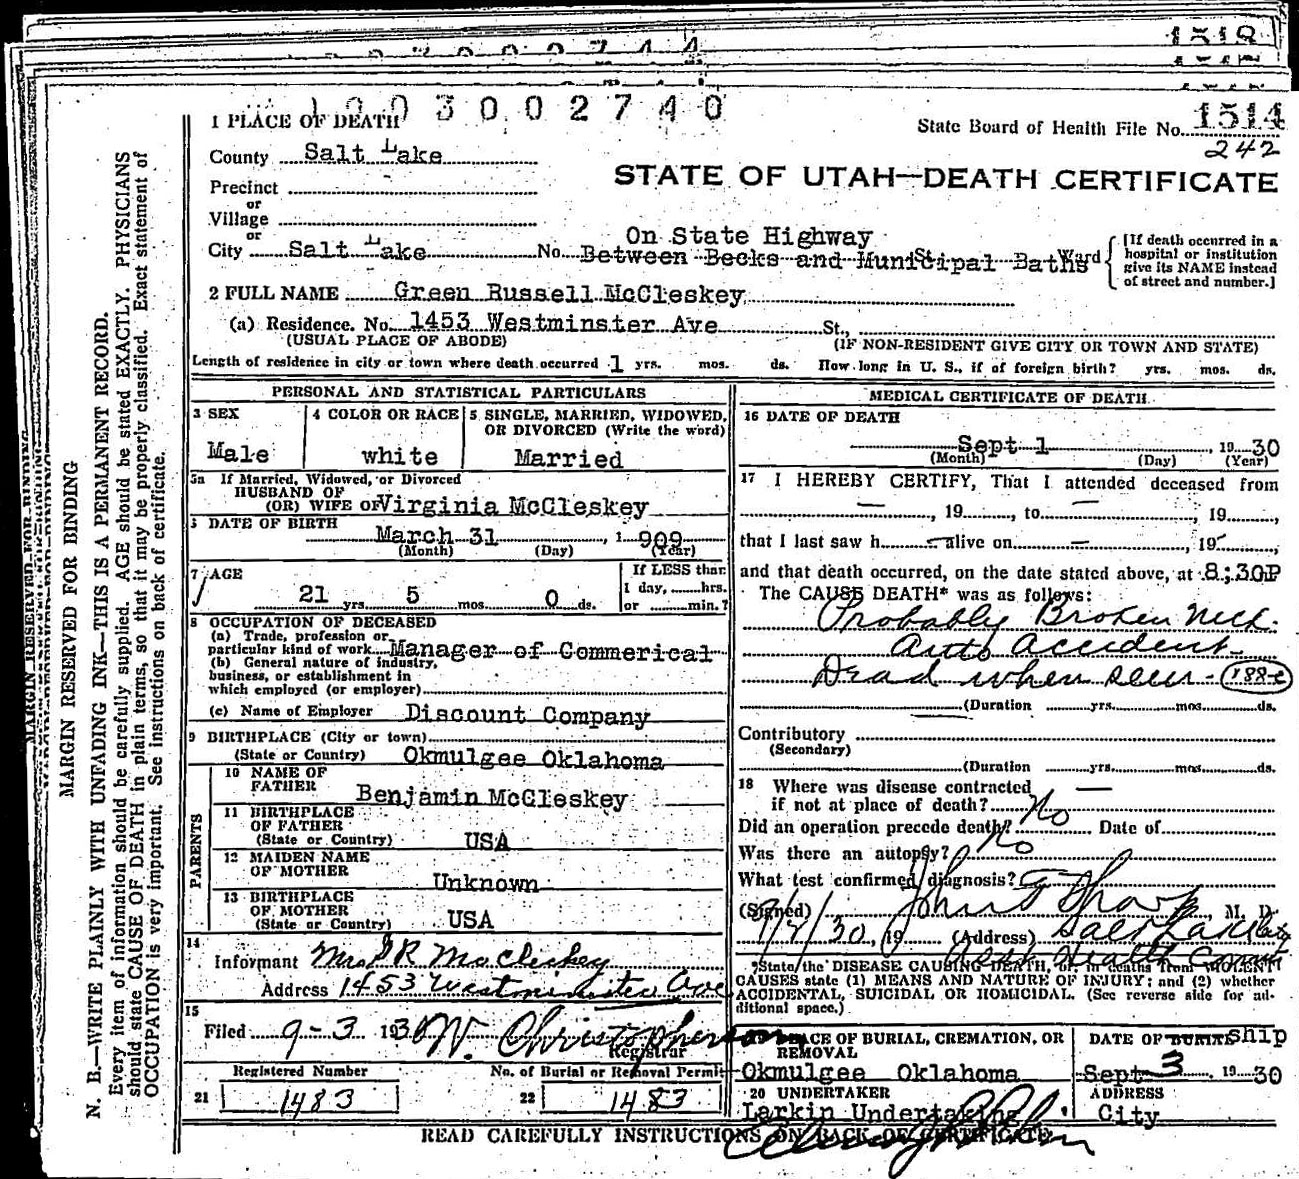 1518
1003002740
1 PLACE OF DEATH
State Board of Health File No. 1514
242
County Salt Lake
STATE OF UTAH—DEATH CERTIFICATE
Precinct
or
Village
or
On State Highway
City Salt Lake No. Between Becks and Municipal Baths St. Ward
[If death occurred in a hospital or institution give its NAME instead of street and number.]
2 FULL NAME Green Russell McCleskey
(a) Residence. No. 1453 Westminster Ave St.,
(USUAL PLACE OF ABODE) (IF NON-RESIDENT GIVE CITY OR TOWN AND STATE)
Length of residence in city or town where death occurred 1 yrs. mos. ds. How long in U. S., if of foreign birth? yrs. mos. ds.
PERSONAL AND STATISTICAL PARTICULARS
3 SEX 4 COLOR OR RACE 5 SINGLE, MARRIED, WIDOWED, OR DIVORCED (Write the word)
Male white Married
5a If Married, Widowed, or Divorced
HUSBAND OF
(OR) WIFE OF Virginia McCleskey
DATE OF BIRTH
March 31, 1 909
(Month) (Day) (Year)
7 AGE If LESS than
21 yrs. 5 mos. 0 ds. 1 day, hrs.
or min.?
8 OCCUPATION OF DECEASED
(a) Trade, profession or
particular kind of work Manager of Commerical
(b) General nature of industry,
business, or establishment in
which employed (or employer)
(c) Name of Employer Discount Company
9 BIRTHPLACE (City or town)
(State or Country) Okmulgee Oklahoma
PARENTS
10 NAME OF
FATHER Benjamin McCleskey
11 BIRTHPLACE
OF FATHER
(State or Country) USA
12 MAIDEN NAME
OF MOTHER
Unknown
13 BIRTHPLACE
OF MOTHER
(State or Country) USA
14
Informant Mrs G R McCleskey
Address 1453 Westminster Ave
15
Filed 9-3 1930 W. Christopherson
Registrar
Registered Number No. of Burial or Removal Permit
21 1483 22 1483
MEDICAL CERTIFICATE OF DEATH
16 DATE OF DEATH
Sept 1 19 30
(Month) (Day) (Year)
17 I HEREBY CERTIFY, That I attended deceased from
—, 19, to —, 19,
that I last saw h — alive on —, 19,
and that death occurred, on the date stated above, at 8;30P
The CAUSE DEATH* was as follows:
Probably Broken Neck.
Auto Accident-
Dead when seen - 188-c
(Duration yrs. mos. ds.
Contributory
(Secondary)
(Duration yrs. mos. ds.
18 Where was disease contracted
if not at place of death? —
Did an operation precede death? No Date of
Was there an autopsy? No
What test confirmed diagnosis?
(Signed) John T Sharp, M. D.
9/2/30, 19 (Address) Salt Lake City
Asst Health Commr
*State the DISEASE CAUSING DEATH, or, in deaths from VIOLENT
CAUSES state (1) MEANS AND NATURE OF INJURY; and (2) whether
ACCIDENTAL, SUICIDAL OR HOMICIDAL. (See reverse side for additional space.)
19 PLACE OF BURIAL, CREMATION, OR REMOVAL DATE OF BURIAL ship
Okmulgee Oklahoma Sept 3 19 30
20 UNDERTAKER ADDRESS
Larkin Undertaking City
READ CAREFULLY INSTRUCTIONS ON BACK OF CERTIFICATE
MARGIN RESERVED FOR BINDING
N. B.—WRITE PLAINLY WITH UNFADING INK—THIS IS A PERMANENT RECORD.
Every item of information should be carefully supplied. AGE should be stated EXACTLY. PHYSICIANS
should state CAUSE OF DEATH in plain terms, so that it may be properly classified. Exact statement of
OCCUPATION is very important. See instructions on back of certificate.